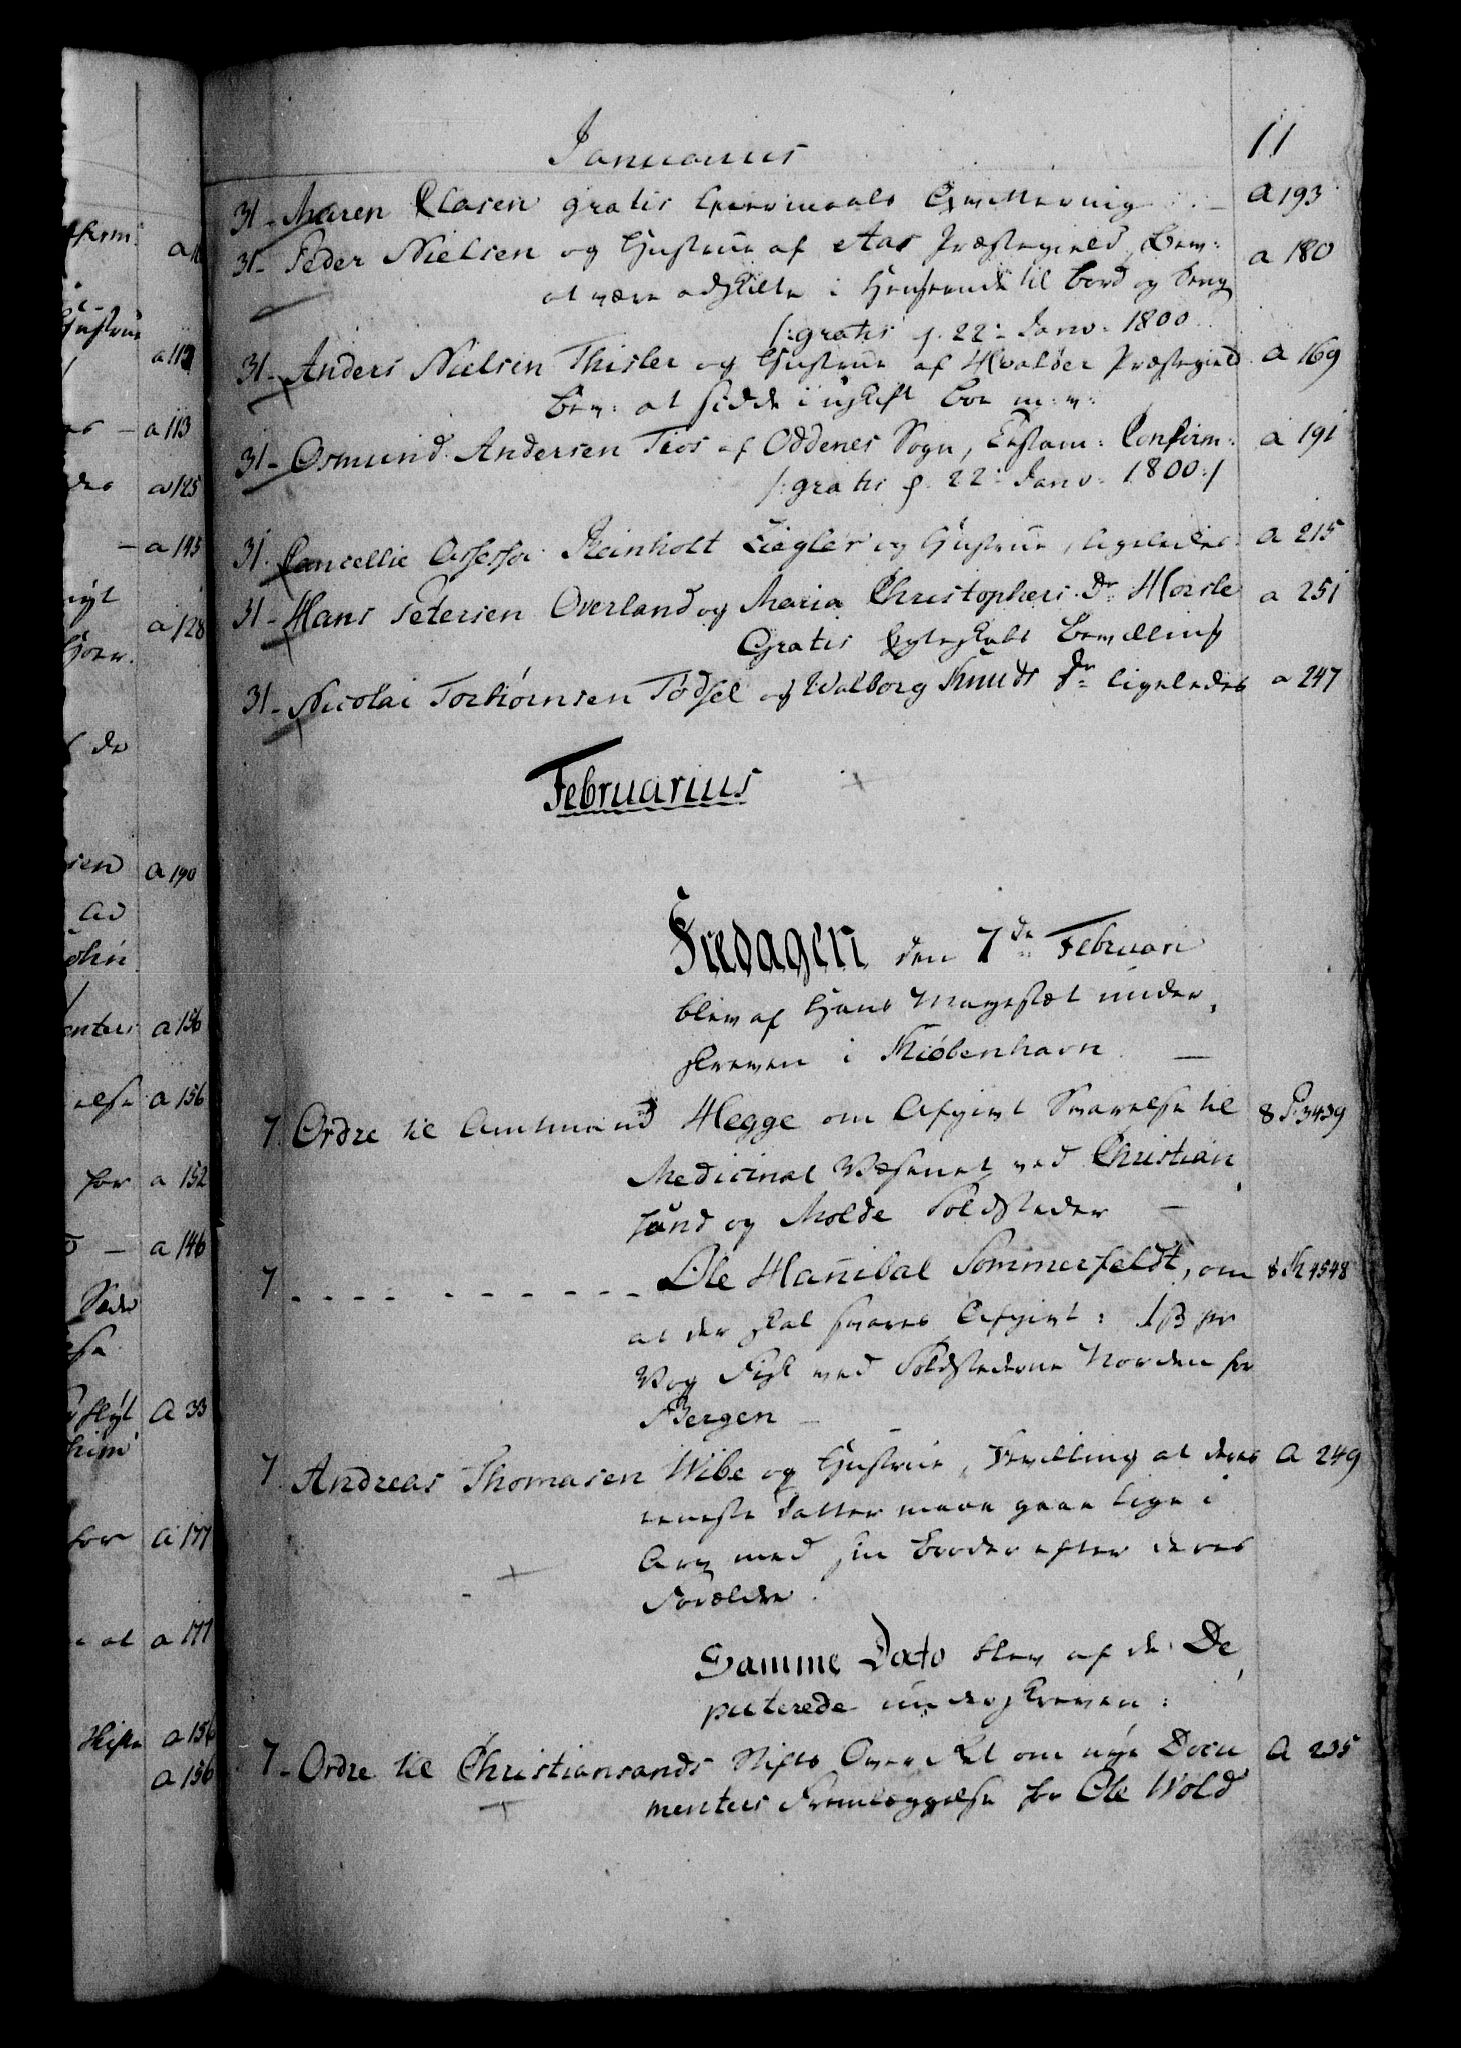 Januarius 11
31- Maren Clasen gratis Leiermaals Eftergivning - a 193
31- Peder Nielsen og Hustrue af Aas Præstegield, Bev: a 180
at være adskilte i Henseende til Bord og Seng
/: gratis f. 22: Janv: 1800
31- Anders Nielsen Thisler og Hustrue af Hvaløer Præstegield a 169
Bev: at sidde i uskift Boe m: v:
31- Osmund Andersen Tios af Oddenes Sogn, Testam: Confirm: a 191
/: gratis f. 22: Janv: 1800 :/
31. Cancellie Assessor Reinholt Ziegler og Hustrue, ligeledes a 215
31- Hans Petersen Overland og Maria Christophers Dr Horsle a 251
Gratis Ægteskabs Bevilling
31- Nicolai Torbiørnsen Tødsel og Walborg Knuds Dr ligeledes a 247
Februarius
Fredagen den 7de Februari
blev af Hans Mayestæt under,
skreven i Kiøbenhavn -
7. Ordre til Amtmand Hegge om Afgivt Svarelse til 8 P. 3439
Medicinal Væsenet ved Christian,
sund og Molde Toldsteder -
7 - - - - - - - - - - Ole Hannibal Sommerfeldt, om 8 4548
at der skal svares Afgivt: 1 ß pr
Vog Fisk ved Toldstederne Norden for
Bergen -
7 Andreas Thomasen Wibe og Hustrue, Bevilling at deres a 249
eeneste Datter maae gaae lige i
Arv med sin Broder efter deres
Forældre.
Samme Dato blev af de De,
puterede underskreven:
7- Ordre til Christiansands Stifts Over Ret om nye Docu a 235
menters Fremlæggelse for Ole Wold